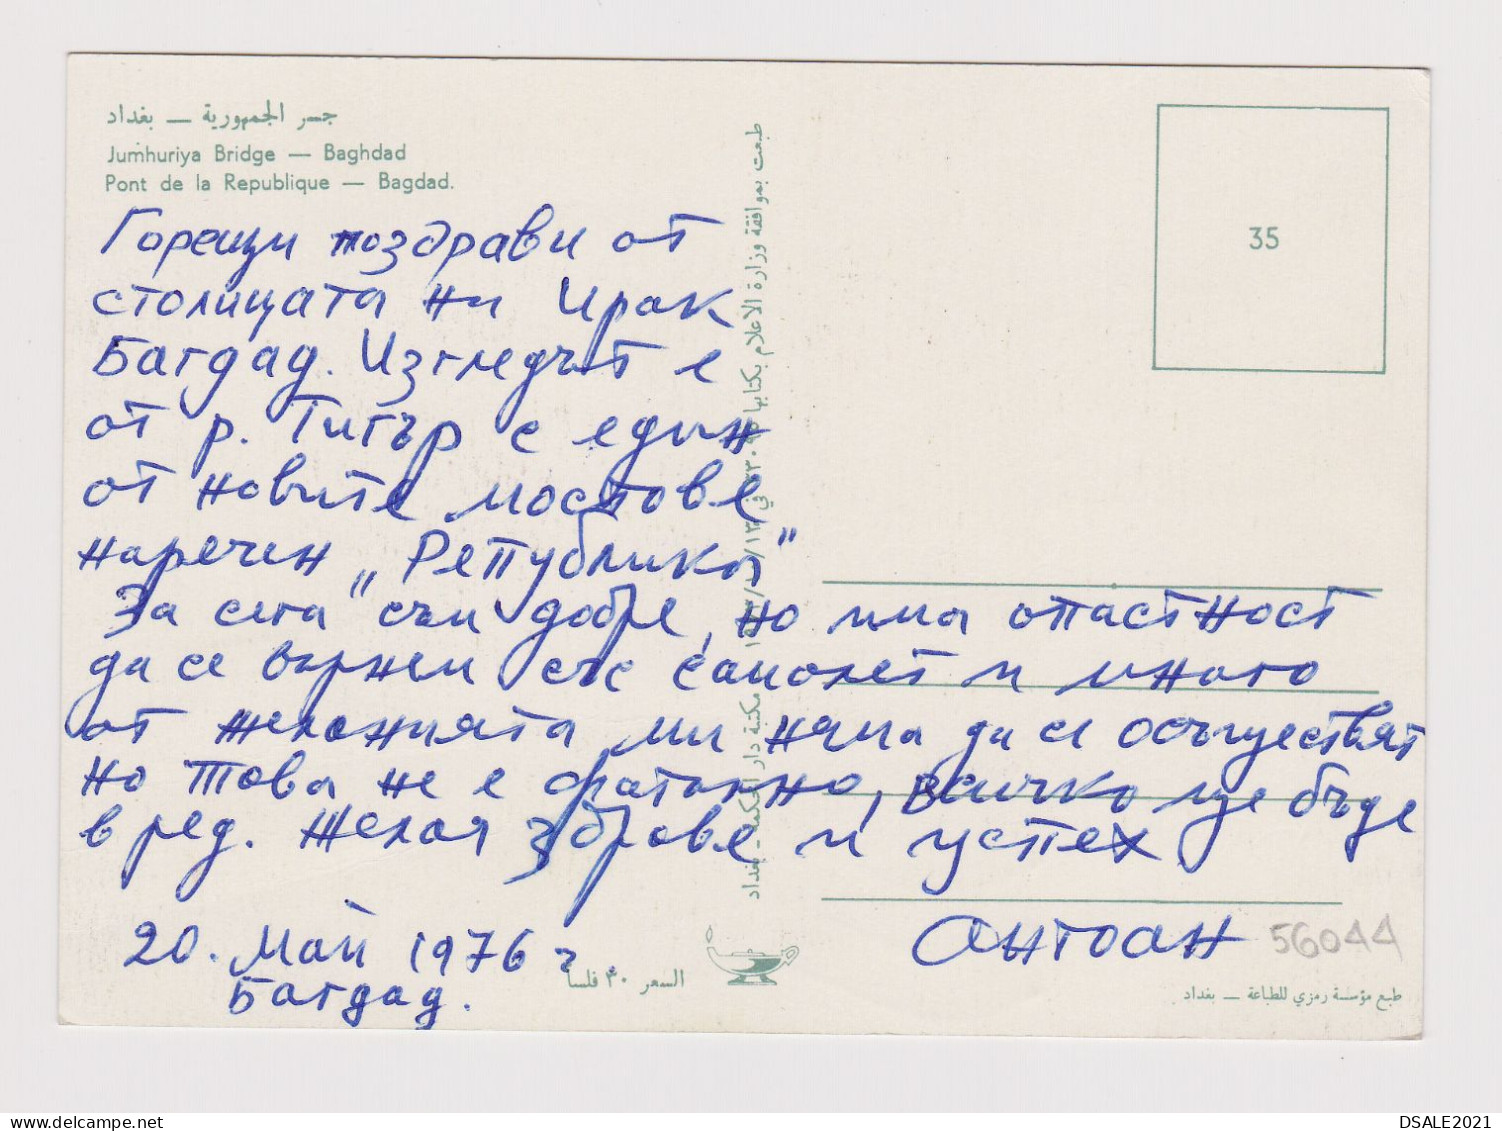 جسر الجمهورية — بغداد
Jumhuriya Bridge — Baghdad
Pont de la Republique — Bagdad.
35
Горещи поздрави от
столицата на Ирак
Багдад. Изгледът е
от р. Тигър с един
от новите мостове
наречен „Република"
За сега съм добре, но има опастност
да се върнем със самолет и много
от желанията ми няма да се осъществят
но това не е фатално, всичко ще бъде
в ред. Желая здраве и успех
Антоан
56044
20. Май 1976 г.
Багдад.
السعر ٣٠ فلسا
طبع مؤسسة رمزي للطباعة — بغداد
طبعت بموافقة وزارة الاعلام بكتابها
مكتبة دار الحكمة - بغداد
DSALE2021